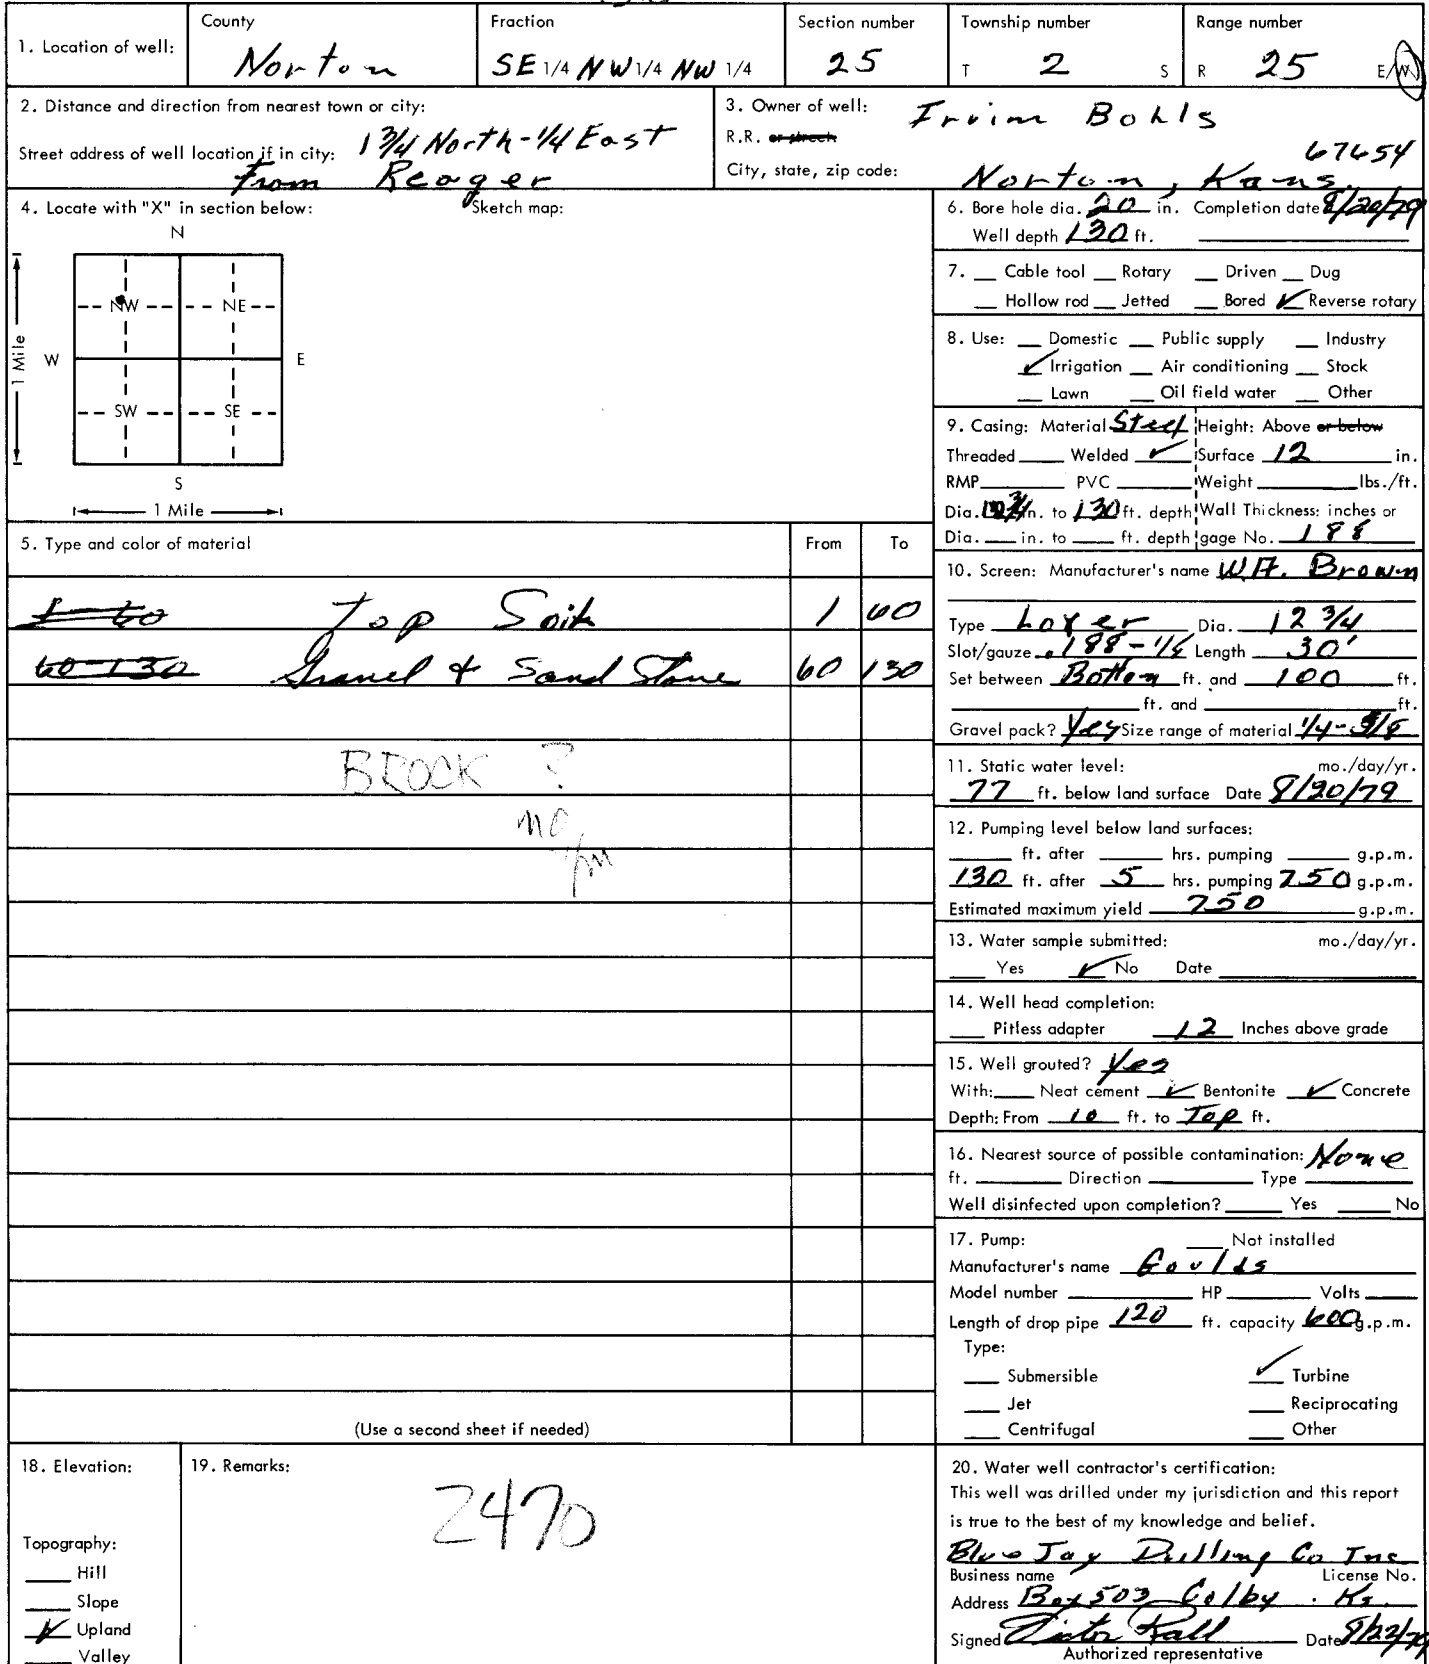 County Fraction Section number Township number Range number
1. Location of well: Norton SE 1/4 NW 1/4 NW 1/4 25 T 2 S R 25 E/W
2. Distance and direction from nearest town or city: 1 3/4 North - 1/4 East
Street address of well location if in city: From Reager
3. Owner of well: Irvin Bohls
R.R. or street:
City, state, zip code: Norton, Kans. 67654
4. Locate with "X" in section below: Sketch map:
N
NW NE
W E
1 Mile
SW SE
S
1 Mile
5. Type and color of material From To
1-60 Top Soil 1 60
60-130 Gravel & Sand Stone 60 130
BROCK ?
no
(Use a second sheet if needed)
6. Bore hole dia. 20 in. Completion date 8/20/79
Well depth 130 ft.
7. Cable tool Rotary Driven Dug
Hollow rod Jetted Bored ✓ Reverse rotary
8. Use: Domestic Public supply Industry
✓ Irrigation Air conditioning Stock
Lawn Oil field water Other
9. Casing: Material Steel Height: Above or below
Threaded Welded ✓ Surface 12 in.
RMP PVC Weight lbs./ft.
Dia. 12 3/4 in. to 130 ft. depth Wall Thickness: inches or
Dia. in. to ft. depth gage No. 188
10. Screen: Manufacturer's name W.A. Brown
Type Dia. 12 3/4
Slot/gauze .188 - 1/8 Length 30'
Set between Bottom ft. and 100 ft.
ft. and ft.
Gravel pack? Yes Size range of material 1/4 - 3/8
11. Static water level: mo./day/yr.
77 ft. below land surface Date 8/20/79
12. Pumping level below land surfaces:
ft. after hrs. pumping g.p.m.
130 ft. after 5 hrs. pumping 750 g.p.m.
Estimated maximum yield 750 g.p.m.
13. Water sample submitted: mo./day/yr.
Yes ✓ No Date
14. Well head completion:
Pitless adapter 12 Inches above grade
15. Well grouted? Yes
With: Neat cement ✓ Bentonite ✓ Concrete
Depth: From 10 ft. to Top ft.
16. Nearest source of possible contamination: None
ft. Direction Type
Well disinfected upon completion? Yes No
17. Pump: Not installed
Manufacturer's name Goulds
Model number HP Volts
Length of drop pipe 120 ft. capacity 600 g.p.m.
Type:
Submersible ✓ Turbine
Jet Reciprocating
Centrifugal Other
18. Elevation:
Topography:
Hill
Slope
✓ Upland
Valley
19. Remarks:
2470
20. Water well contractor's certification:
This well was drilled under my jurisdiction and this report
is true to the best of my knowledge and belief.
Blue Jay Drilling Co Inc
Business name License No.
Address Box 503 Colby Ks.
Signed Victor Kall Date 8/22/79
Authorized representative